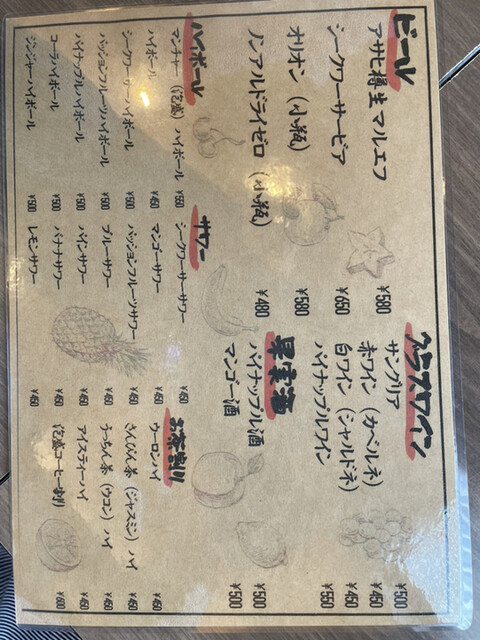 ビール
アサヒ樽生マルエフ ¥580
シークワーサービア ¥650
オリオン (小瓶) ¥580
ノンアルドライゼロ (小瓶) ¥480
グラスワイン
サングリア ¥500
赤ワイン (カベルネ) ¥450
白ワイン (シャルドネ) ¥450
パイナップルワイン ¥550
果実酒
パイナップル酒 ¥500
マンゴー酒 ¥500
ハイボール
マンチャー (泡盛) ハイボール ¥550
ハイボール ¥450
シークワーサーハイボール ¥500
パッションフルーツハイボール ¥500
パイナップルハイボール ¥500
コーラハイボール ¥500
ジンジャーハイボール ¥500
サワー
シークワーサーサワー ¥450
マンゴーサワー ¥450
パッションフルーツサワー ¥450
ブルーサワー ¥450
パインサワー ¥450
バナナサワー ¥450
レモンサワー ¥450
お茶割り
ウーロンハイ ¥450
さんぴん茶 (ジャスミン) ハイ ¥450
うっちん茶 (ウコン) ハイ ¥450
アイスティーハイ ¥450
泡盛コーヒー割り ¥600